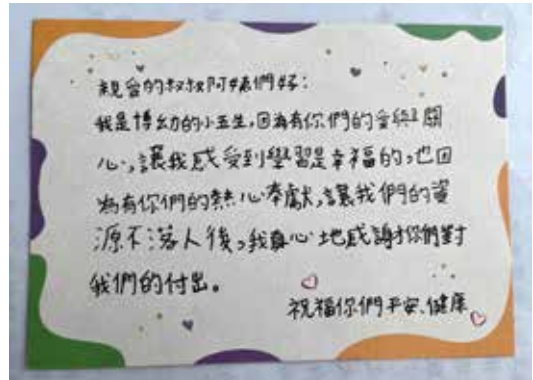 親愛的叔叔阿姨們好：
我是博幼的小五生，因為有你們的愛與關
心，讓我感受到學習是幸福的，也因
為有你們的熱心奉獻，讓我們的資
源不落人後，我真心地感謝你們對
我們的付出。
祝福你們平安、健康